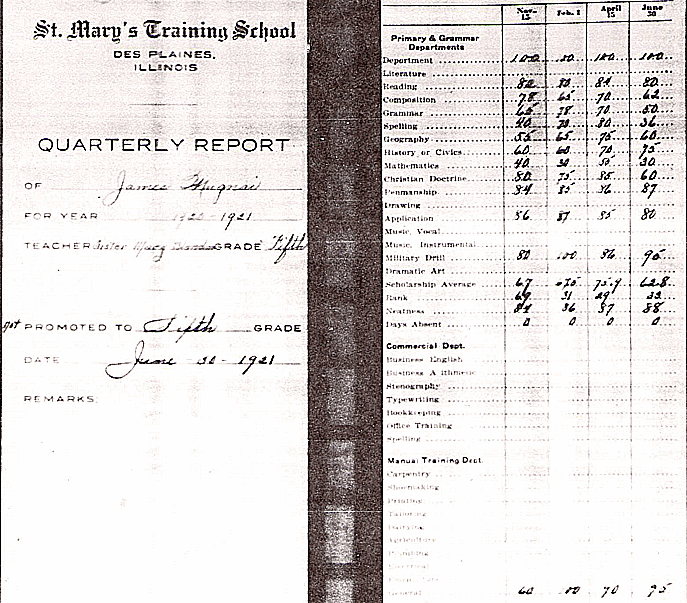 St. Mary's Training School
DES PLAINES,
ILLINOIS
QUARTERLY REPORT
OF James
FOR YEAR 1920-1921
TEACHER Sister Mary GRADE Fifth
Not PROMOTED TO Fifth GRADE
DATE June 30-1921
REMARKS:
Nov. 15 Feb. 1 April 15 June 30
Primary & Grammar
Departments
Department 100 100 100
Literature
Reading 82 80 84 80
Composition 78 65 70 62
Grammar 65 78 70 50
Spelling 40 70 80 36
Geography 55 65 75 60
History or Civics 60 60 70 75
Mathematics 40 30 50 30
Christian Doctrine 80 75 85 60
Penmanship 84 85 86 87
Drawing
Application 87 85 80
Music, Vocal
Music, Instrumental
Military Drill 80 100 86 95
Dramatic Art
Scholarship Average 67 75.4 62.8
Rank 69 31 29 33
Neatness 84 86 87 88
Days Absent 0 0 0 0
Commercial Dept.
Business English
Business Arithmetic
Stenography
Typewriting
Bookkeeping
Office Training
Spelling
Manual Training Dept.
Carpentry
Shoemaking
Printing
Tailoring
Dairying
Agriculture
Plumbing
Electrical
General 60 70 95